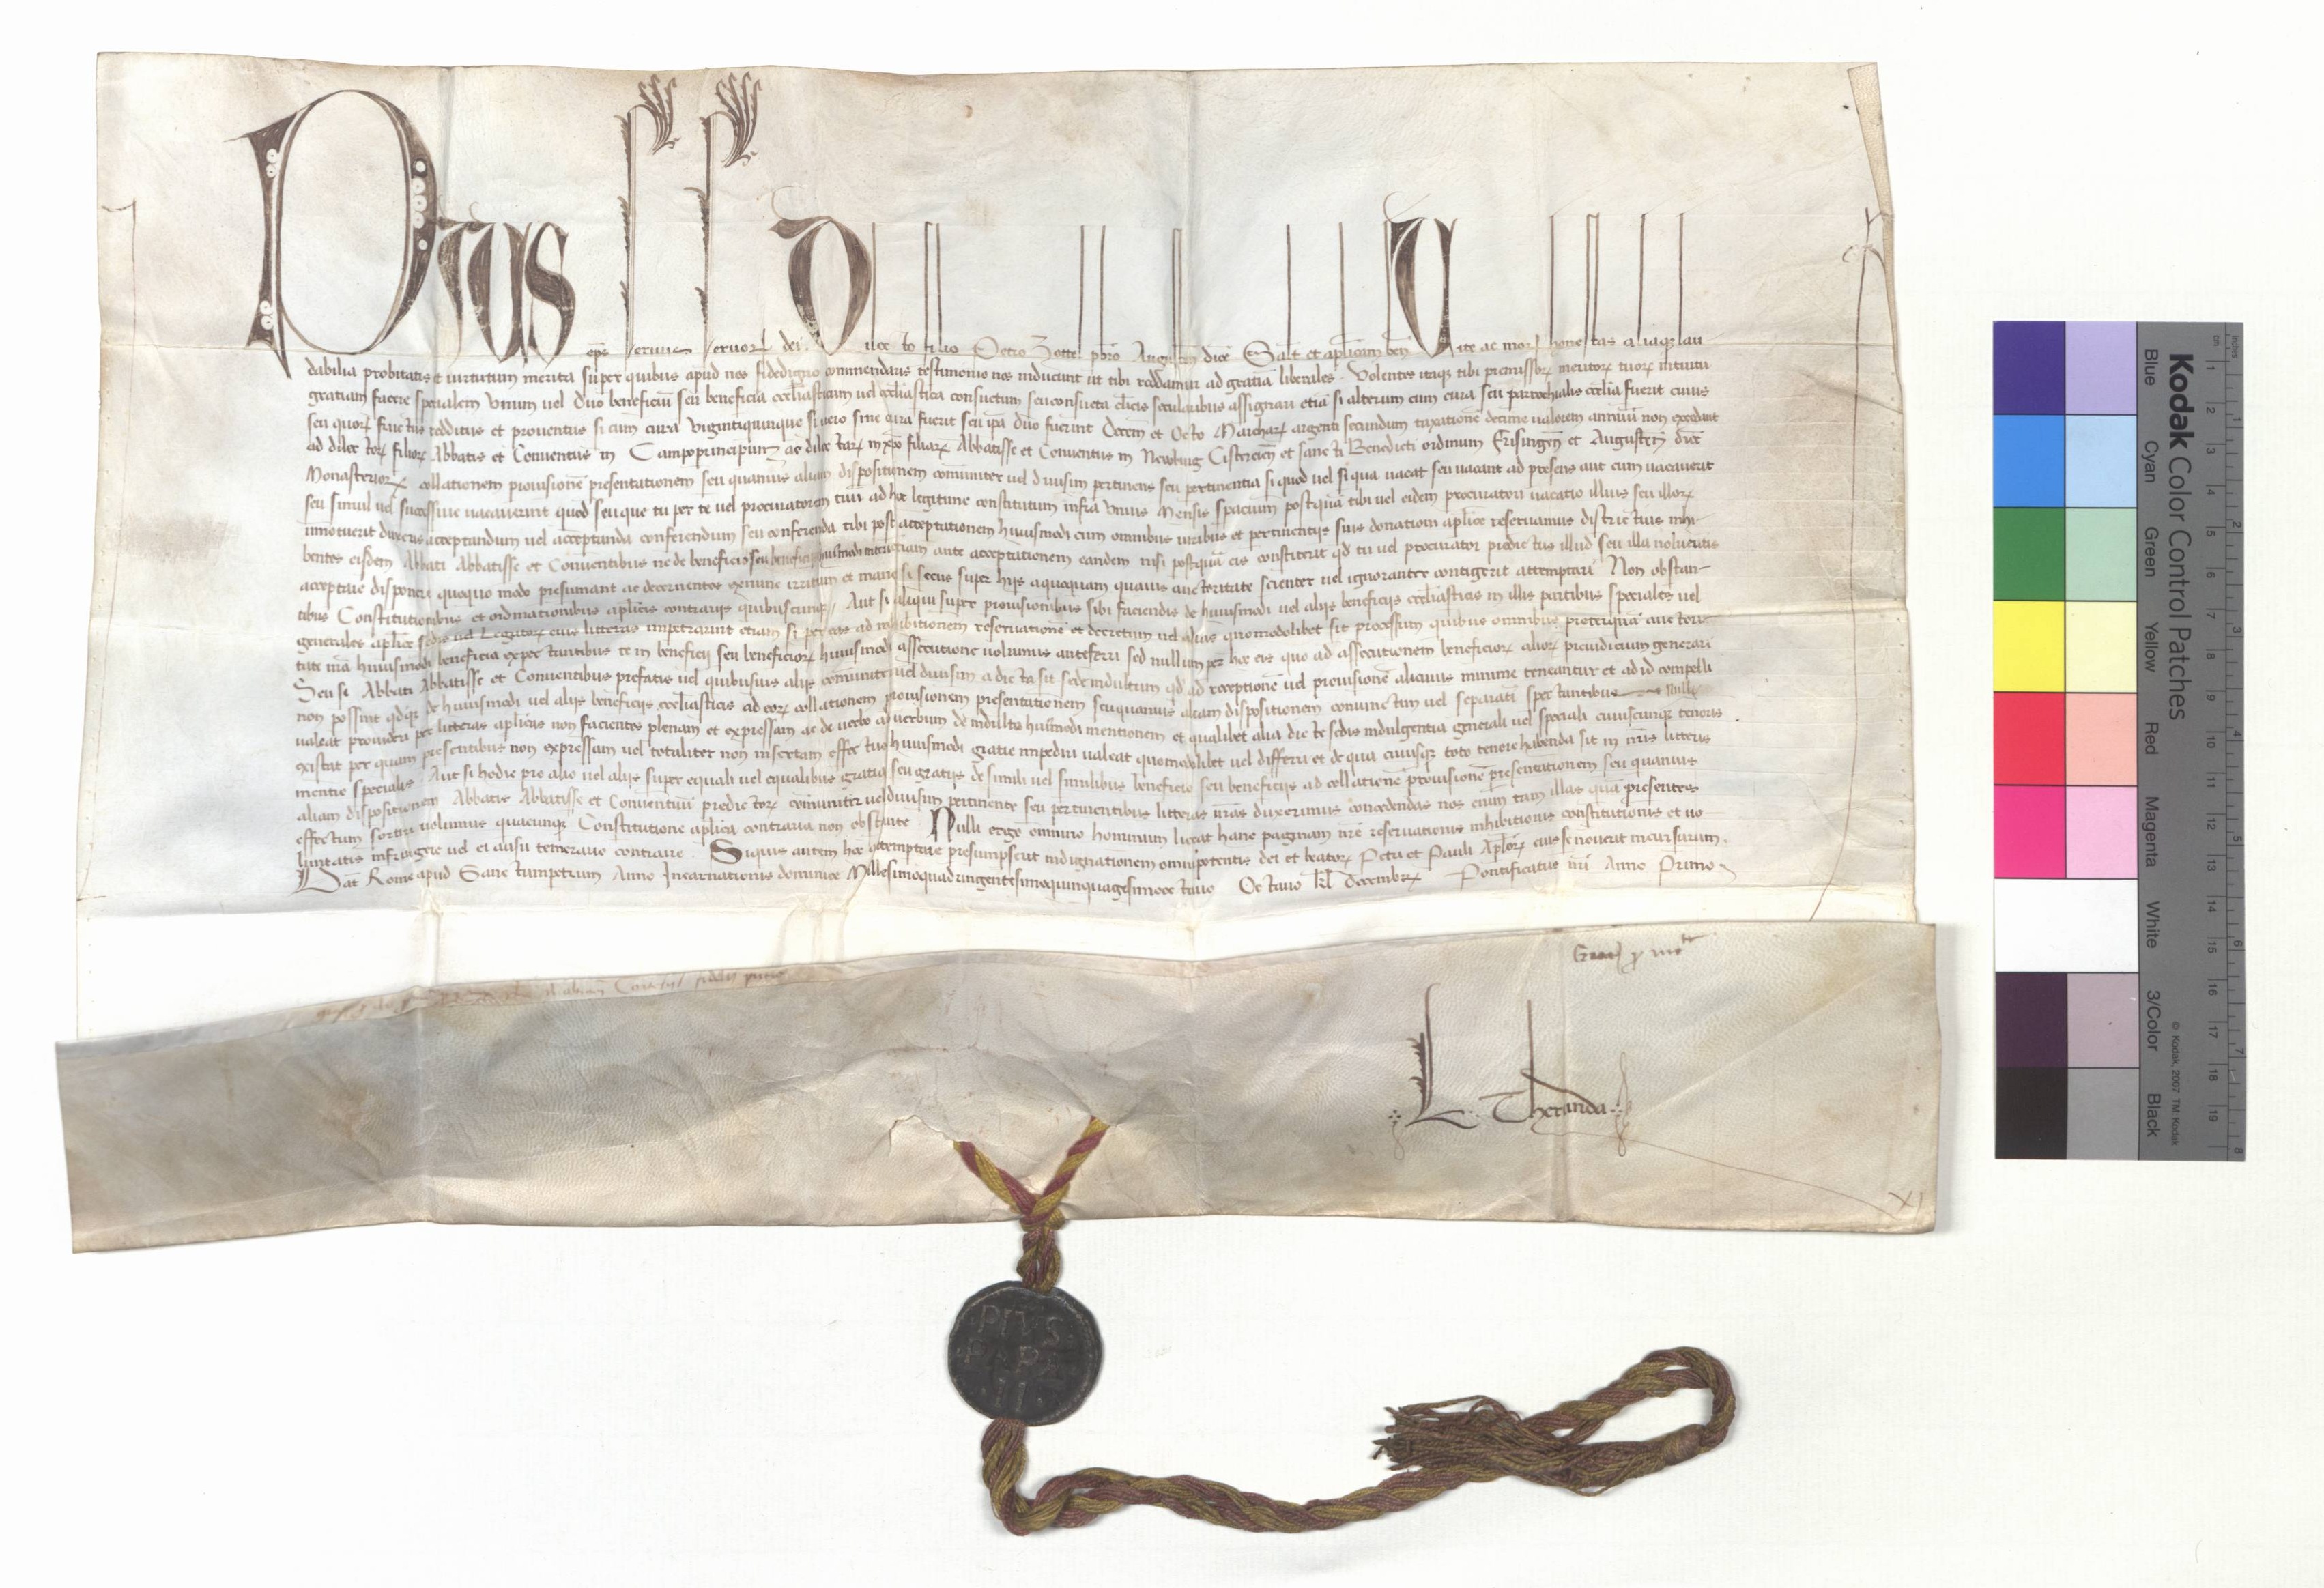 Pius eps seruus seruorꝝ dei. Dilecto filio Petro Zottel pbro Augusteñ dioc̄ Salt̄ et aplicam beñ Vite ac morꝝ honestas aliaqꝫ lau
dabilia probitatis et uirtutum merita super quibus apud nos fidedigno commendaris testimonio nos inducunt ut tibi reddamur ad gratiā liberales. Volentes itaqꝫ tibi premissorꝝ meritorꝝ tuorꝝ intuitu
gratiam facere specialem Vnum uel duo beneficiū seu beneficia ecclīasticum uel ecclīastica consuetum seu consueta clīcis secularibus assignari etiā si alterum cum cura seu parrochialis ecclīa fuerit cuius
seu quorꝝ fructus redditus et prouentus si cum cura Vigintiquinque si uero sine cura fuerit seu ip̄a duo fuerint Decem et Octo Marcharꝝ argenti secundum taxationē decime ualorem annuū non excedunt
ad dilectorꝝ filiorꝝ Abbatis et Conuentus in Campoprincipum ac dilectarꝝ in xp̄o filiarꝝ Abbatisse et Conuentus in Newburg Cistercieñ et sancti Benedicti ordinum Frisingeñ et Augusteñ dioc̄
Monasteriorꝝ collationem prouisionē presentationem seu quamuis aliam dispositionem cōmuniter uel diuisim pertinens seu pertinentia si quod uel si qua uacat seu uacant ad presens aut cum uacauerit
seu simul uel successiue uacauerint quod seu que tu per te uel procuratorem tuū ad hoc legitime constitutum infra Vnius Mensis spacium postquā tibi uel eidem procuratori uacatio illius seu illorꝝ
innotuerit duxeris acceptandum uel acceptanda conferendum seu conferenda tibi post acceptationem huiusmodi cum omnibus iuribus et pertinentijs suis donationi aplice reseruamus districtius inhi-
bentes eisdem Abbati Abbatisse et Conuentibus ne de beneficio seu beneficijs huiusmodi interim etiam ante acceptationem eandem nisi postquā eis constiterit qd tu uel procurator predictus illud seu illa nolueritis
acceptare disponere quoquo modo presumant ac decernentes exnunc irritum et inane si secus super hijs a quoquam quauis auctoritate scienter uel ignoranter contigerit attemptari Non obstan-
tibus Constitutionibus et ordinationibus aplicis contrarijs quibuscunqꝫ Aut si aliqui super prouisionibus sibi faciendis de huiusmodi uel alijs beneficijs ecclīasticis in illis partibus speciales uel
generales aplice sedis uel Legatorꝝ eius litteras impetrarint etiam si per eas ad inhibitionem reseruationē et decretum uel alias quomodolibet sit processum quibus omnibus preterquā auctori-
tate nrā huiusmodi beneficia expectantibus te in beneficij seu beneficiorꝝ huiusmodi assecutione uolumus anteferri sed nullum per hoc eis quo ad assecutionem beneficiorꝝ aliorꝝ preiudicium generari
Seu si Abbati Abbatisse et Conuentibus prefatis uel quibusuis alijs cōmuniter uel diuisim a dicta sit sede indultum qd ad receptionē uel prouisionē alicuius minime teneantur et ad id compelli
non possint qdqꝫ de huiusmodi uel alijs beneficijs ecclīasticis ad eorꝝ collationem prouisionem presentationem seu quamuis aliam dispositionem coniunctim uel separatī spectantibus nulli
ualeat prouideri per litteras aplicas non facientes plenam et expressam ac de uerbo ad uerbum de indulto huiusmodi mentionem et qualibet alia dicte sedis indulgentia generali uel speciali cuiuscunqꝫ tenoris
existat per quam presentibus non expressam uel totaliter non insertam effectus huiusmodi gratie impediri ualeat quomodolibet uel differri et de qua cuiusqꝫ toto tenore habenda sit in nrīs litteris
mentio specialis Aut si hodie pro alio uel alijs super equali uel equalibus gratia seu gratijs de simili uel similibus beneficio seu beneficijs ad collationē prouisionē presentationem seu quamuis
aliam dispositionem Abbatis Abbatisse et Conuentuū predictorꝝ cōmuniter uel diuisim pertinente seu pertinentibus litteras nrās duxerimus concedendas nos enim tam illas quā presentes
effectum sortiri uolumus quacunqꝫ Constitutione aplica contraria non obstante. Nulli ergo omnino hominum liceat hanc paginam nrē reseruationis inhibitionis constitutionis et uo-
luntatis infringere uel ei ausu temerario contraire. Siquis autem hoc attemptare presumpserit indignationem omnipotentis dei et beatorꝝ Petri et Pauli Aplorꝝ eius se nouerit incursurum.
Dat̄ Rome apud Sanctumpetrum Anno Incarnationis dominice Millesimoquadringentesimoquinquagesimooctauo Octauo kl̄ Decembrꝝ Pontificatus nrī Anno Primo
L. Theranda
XI
PIVS
PAPA
II
Kodak Color Control Patches
© Kodak, 2007 TM: Kodak
Blue Cyan Green Yellow Red Magenta White 3/Color Black
cm 1 2 3 4 5 6 7 8 9 10 11 12 13 14 15 16 17 18 19
inches 1 2 3 4 5 6 7 8